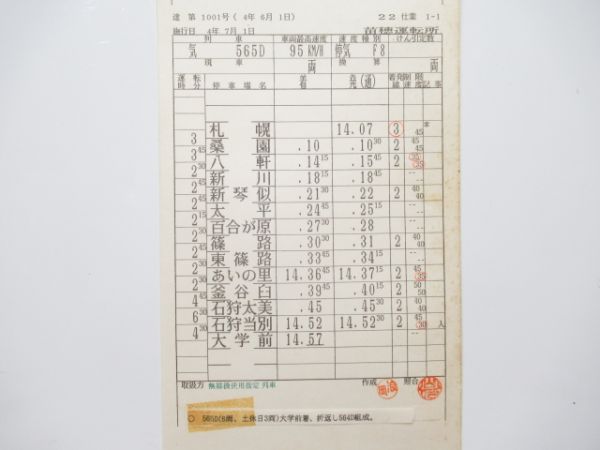 達 第 1001号( 4年 6月 1日) 22 仕業 1-1
施行日 4年 7月 1日 苗穂運転所
列 車 車両最高速度 速 度 種 別 けん引定数
気 565D 95 KM/H 停気 F8
現 車 両 換 算 両
運転時分 停 車 場 名 着 発(通) 着発線 制限速度 記 事
札 幌 14.07 3 45
3 桑 園 .10 .10 30 2 45 45
3 45 八 軒 .14 15 .15 45 2 35 35
2 30 新 川 .18 15 .18 45 --
2 45 新 琴 似 .21 30 .22 2 40 40
2 45 太 平 .24 45 .25 15 --
2 15 百合が原 .27 30 .28 --
2 30 篠 路 .30 30 .31 2 40 40
2 45 東 篠 路 .33 45 .34 15 --
2 30 あいの里 14.36 45 14.37 15 2 45 35
2 30 釜 谷 臼 .39 45 .40 15 2 50 50
4 45 石狩太美 .45 .45 30 2 40 40
6 30 石狩当別 14.52 14.52 30 2 45 30 入
4 30 大 学 前 14.57
取扱方 無線機使用指定 列車 作成 照合
○ 565D(6両、土休日3両)大学前着、折返し564D組成。